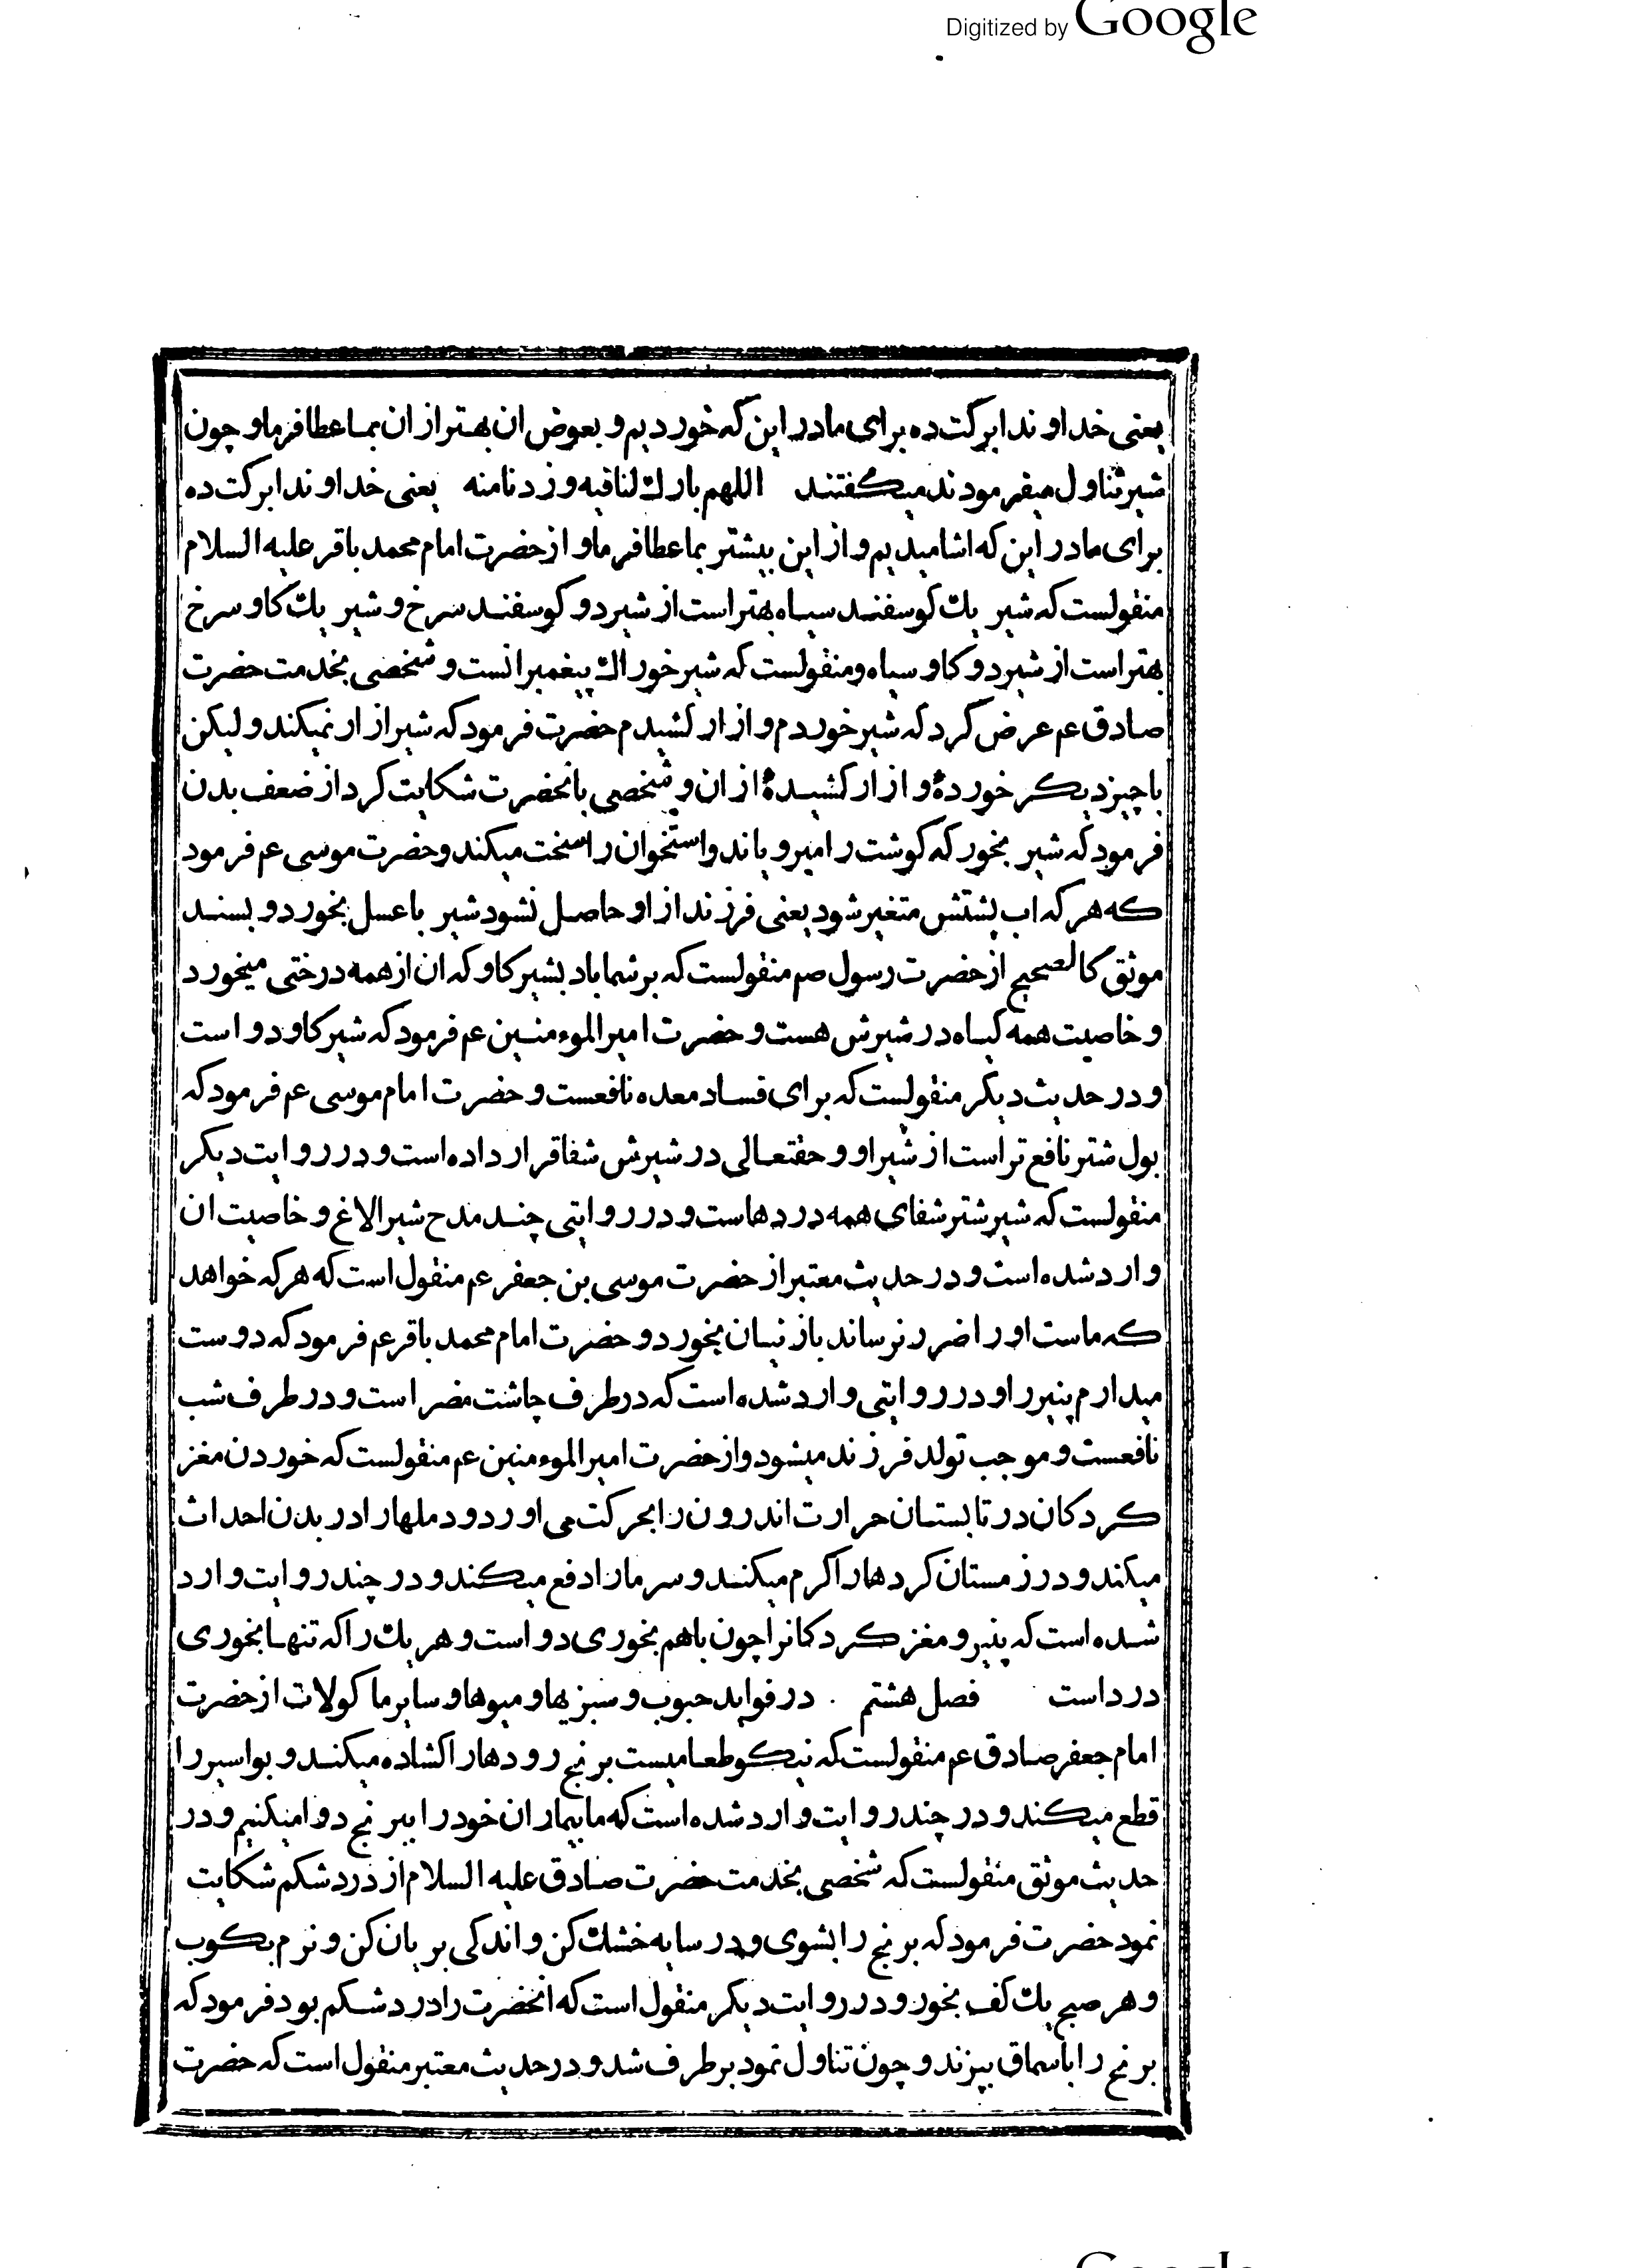 Digitized by Google
یعنی خداوندا برکت ده برای ما در این که خوردیم و بعوض ان بهتر از ان بما عطا فرما و چون
شیر تناول میفرمودند میکفتند اللهم بارك لنا فیه و زدنا منه یعنی خداوندا برکت ده
برای ما در این که اشامیدیم و از این بیشتر بما عطا فرما و از حضرت امام محمد باقر علیه السلام
منقولست که شیر یك کوسفند سیاه بهتر است از شیر دو کوسفند سرخ و شیر یك کاو سرخ
بهتر است از شیر دو کاو سیاه و منقولست که شیر خوراك پیغمبرانست و شخصی بخدمت حضرت
صادق عم عرض کرد که شیر خوردم و ازار کشیدم حضرت فرمود که شیر ازار نمیکند و لیکن
با چیز دیکر خوردهٔ و ازار کشیدهٔ از ان و شخصی بانحضرت شکایت کرد از ضعف بدن
فرمود که شیر بخور که کوشت را میرویاند و استخوان را سخت میکند و حضرت موسی عم فرمود
که هر که اب پشتش متغیر شود یعنی فرزند از او حاصل نشود شیر با عسل بخورد و بسند
موثق کالصحیح از حضرت رسول صم منقولست که بر شما باد بشیر کاو که ان از همه درختی میخورد
و خاصیت همه کیاه در شیرش هست و حضرت امیر الموءمنین عم فرمود که شیر کاو دوا است
و در حدیث دیکر منقولست که برای فساد معده نافعست و حضرت امام موسی عم فرمود که
بول شتر نافع تر است از شیر او و حقتعالی در شیرش شفا قرار داده است و در روایت دیکر
منقولست که شیر شتر شفای همه دردهاست و در روایتی چند مدح شیر الاغ و خاصیت ان
وارد شده است و در حدیث معتبر از حضرت موسی بن جعفر عم منقول است که هر که خواهد
که ماست او را ضرر نرساند باز نیان بخورد و حضرت امام محمد باقر عم فرمود که دوست
میدارم پنیر را و در روایتی وارد شده است که در طرف چاشت مضر است و در طرف شب
نافعست و موجب تولد فرزند میشود و از حضرت امیر الموءمنین عم منقولست که خوردن مغز
کردکان در تابستان حرارت اندرون را بحرکت می اورد و دملها را در بدن احداث
میکند و در زمستان کردها را کرم میکند و سرما را دفع میکند و در چند روایت وارد
شده است که پنیر و مغز کردکانرا چون باهم بخوری دوا است و هر یك را که تنها بخوری
درد است فصل هشتم در فواید حبوب و سبزیها و میوها و سایر ماکولات از حضرت
امام جعفر صادق عم منقولست که نیکو طعامیست برنج رودها را کشاده میکند و بواسیر را
قطع میکند و در چند روایت وارد شده است که ما بیماران خود را ببرنج دوا میکنیم و در
حدیث موثق منقولست که شخصی بخدمت حضرت صادق علیه السلام از درد شکم شکایت
نمود حضرت فرمود که برنج را بشوی و در سایه خشك کن و اندکی بریان کن و نرم بکوب
و هر صبح یك کف بخور و در روایت دیکر منقول است که انحضرت را درد شکم بود فرمود که
برنج را با سماق بپزند و چون تناول نمود بر طرف شد و در حدیث معتبر منقول است که حضرت